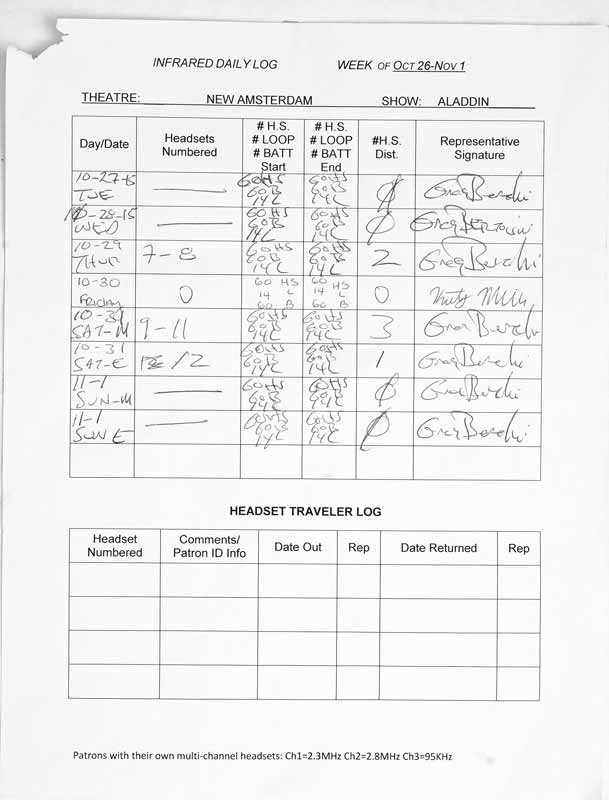 INFRARED DAILY LOG WEEK OF OCT 26-NOV 1
THEATRE: NEW AMSTERDAM SHOW: ALADDIN
Day/Date
Headsets
Numbered
# H.S.
# LOOP
# BATT
Start
# H.S.
# LOOP
# BATT
End
#H.S.
Dist.
Representative
Signature
10-27-15
TUE
60HS
60B
14L
60HS
60B
14L
0
10-28-15
WED
60HS
60B
14L
60HS
60B
14L
0
10-29
THUR
7-8
60HS
60B
14L
60HS
60B
14L
2
10-30
FRIDAY
0
60 HS
14 L
60 B
60 HS
14 L
60 B
0
10-31
SAT-M
9-11
60HS
60B
14L
60HS
60B
14L
3
10-31
SAT-E
12
60HS
60B
14L
60HS
60B
14L
1
11-1
SUN-M
60HS
60B
14L
60HS
60B
14L
0
11-1
SUN E
60HS
60B
14L
60HS
60B
14L
0
HEADSET TRAVELER LOG
Headset
Numbered
Comments/
Patron ID Info
Date Out
Rep
Date Returned
Rep
Patrons with their own multi-channel headsets: Ch1=2.3MHz Ch2=2.8MHz Ch3=95KHz